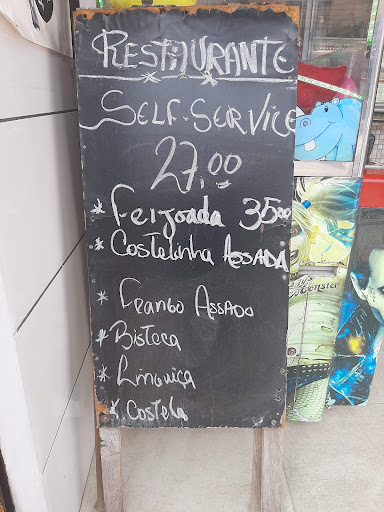 RESTAURANTE
SELF-SERVICE
27,00
* Feijoada 35,00
* Costelinha ASSADA
* FRANGO ASSADO
* Bisteca
* Linguiça
* Costela